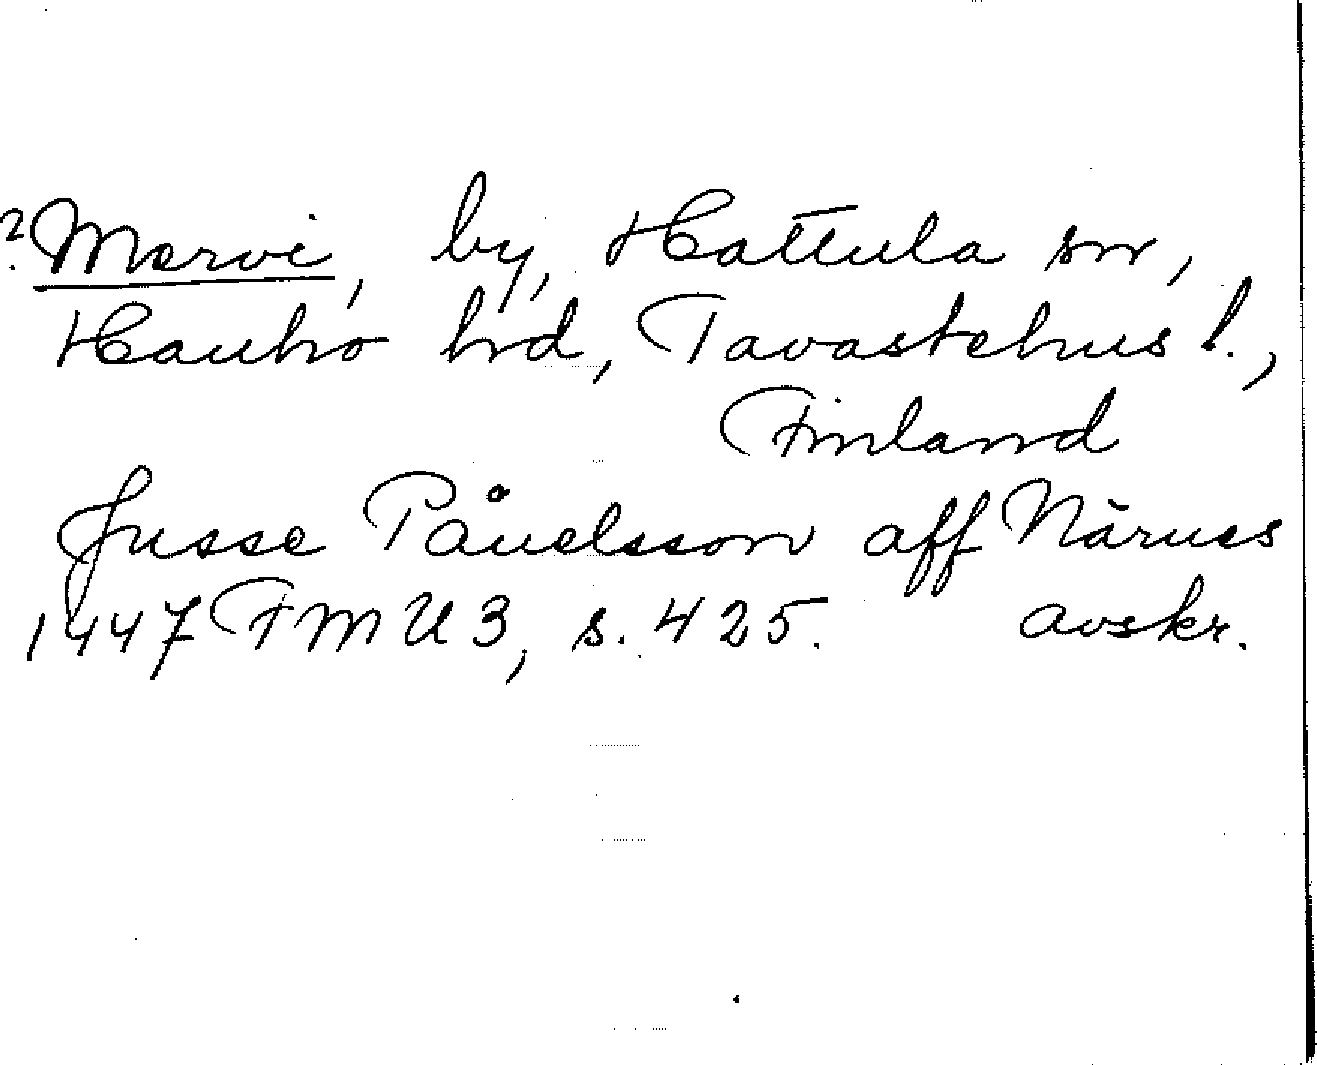 ? Mervi, by, Hattula sn,
Hauho hrd, Tavastehus l.,
Finland
Jusse Påuelsson aff Närues
1447 FMU 3, s. 425. avskr.